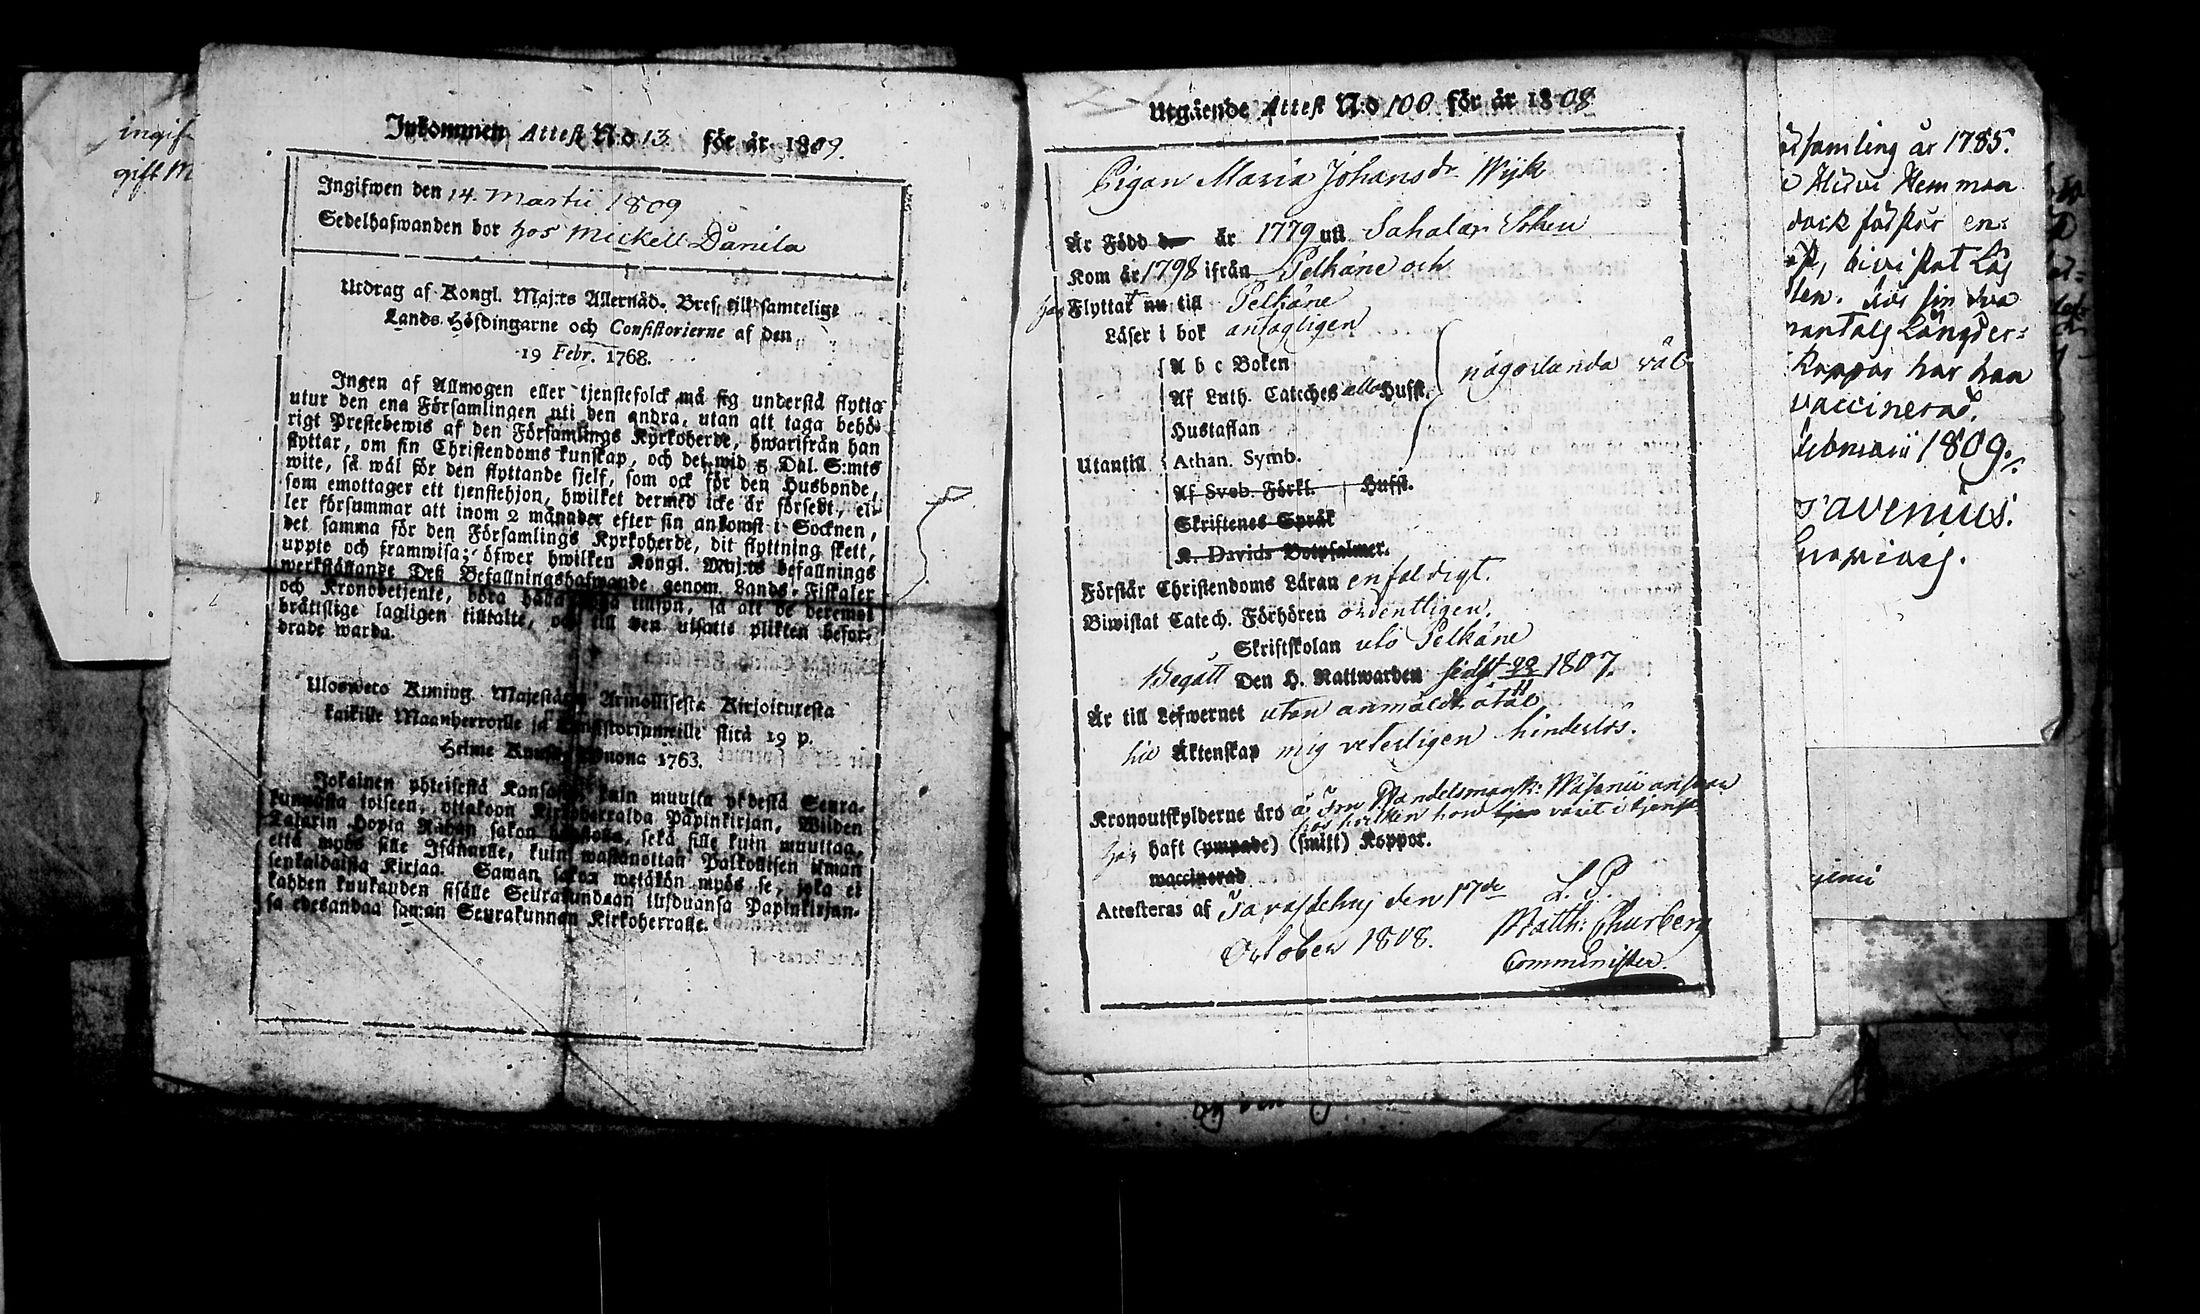 ingif
gift M
Inkommen Attest N:o 13 för år 1809.
Ingifwen den 14 Martii 1809
Sedelhafwanden bor hos Mickell Danila
Utdrag af Kongl. Maj:ts Allernåd. Bref till samtelige
Lands Höfdingarne och Consistorierne af den
19 Febr. 1768.
Ingen af Allmogen eller tjenstefolck må sig understå flytta
utur den ena Församlingen uti den andra, utan att taga behö-
rigt Prestebewis af den Församlings Kyrkoherde, hwarifrån han
flyttar, om sin Christendoms kunskap, och det wid 5 Dal. S:mts
wite, så wäl för den flyttande sjelf, som ock för den Husbonde,
som emottager ett tjenstehjon, hwilket dermed icke är försedt, el-
ler försummar att inom 2 månader efter sin ankomst i Socknen,
det samma för den Församlings Kyrkoherde, dit flyttning skett,
uppte och framwisa; öfwer hwilken Kongl. Maj:ts befallnings
werkställande Dess Befallningshafwande genom Lands-Fiskaler
och Kronobetjente, böra hålla tillsyn, så att de deremot
bråttslige lagligen tilltalte, och till den utsatte plikten befor-
drade warda.
Ulosweto Kuning. Majestätin Armollisesta Kirjoituxesta
kaikille Maanherroille ja Consistoriumeille siitä 19 p.
Helme Kuusa Wuona 1763.
Jokainen yhteisestä Kansasta kuin muutta yhdestä Seura-
kunnasta toiseen, ottakoon Kirkoherralda Papinkirjan, Wiiden
Talarin Hopia Rahan sakon haastolla, sekä sille kuin muuttaa,
että myös sille Isännelle, kuin wastanottaa Palkollisen ilman
senkaldaista Kirjaa. Saman sakon wetäkön myös se, joka ei
kahden kuukauden sisälle Seurakundaan tulduansa Papinkirjan-
sa edesandaa saman Seurakunnan Kirkoherralle.
Utgående Attest N:o 100 för år 1808
Pigan Maria Johansdr Wijk
Är Född år 1779 uti Sahalax Soken
Kom år 1798 ifrån Pelkäne och
har Flyttat nu till Pelkäne
Läser i bok antagligen
A b c Boken
Af Luth. Cateches alla Hufst. någorlunda väl
Hustaflan
Utantill Athan. Symb.
Af Sveb. Förkl. Hufst.
Skriftenes Språk
K. Davids Botpsalmer.
Förstår Christendoms Läran enfaldigt.
Biwistat Catech. Förhören ordentligen.
Skriftskolan uti Pelkäne
Begått Den H. Nattwarden sidst 22/11 1807.
Är till Lefwernet utan anmäldt åtal
Äktenskap mig veterligen hinderlös.
Kronoutskylderne äro å
hos hvilken hon varit i tjenst
har haft (ympade) (smitt) Koppor.
waccinerad
Attesteras af Tavastehus den 17de L. P.
October 1808. Matth: Churberg
Comminister.
samling år 1785.
Hemman
en-
bivistat Läs
sin
mantals Längder-
Koppor har han
vaccinerad.
Februarii 1809.
avenius.